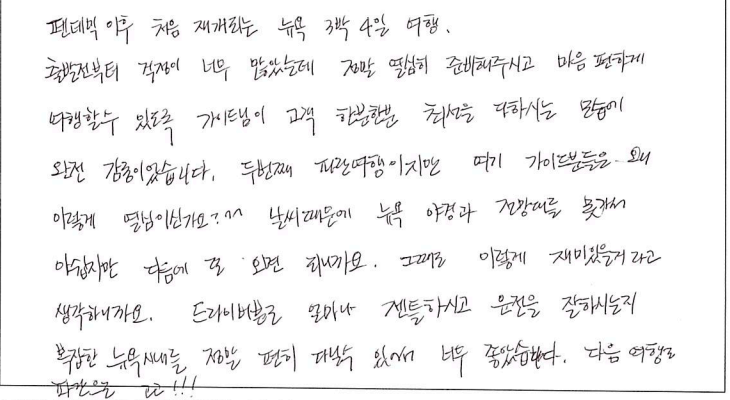 팬데믹 이후 처음 재개되는 뉴욕 3박 4일 여행.
출발전부터 걱정이 너무 많았는데 정말 열심히 준비해주시고 마음 편하게
여행할수 있도록 가이드님이 고객 한분한분 최선을 다하시는 모습에
완전 감동이었습니다. 두번째 파란여행이지만 여기 가이드분들은 왜
이렇게 열심이신가요?^^ 날씨때문에 뉴욕 야경과 전망대를 못가서
아쉽지만 다음에 또 오면 되니까요. 그때도 이렇게 재미있을거라고
생각하니까요. 드라이버분도 얼마나 젠틀하시고 운전을 잘하시는지
복잡한 뉴욕시내를 정말 편히 다닐수 있어서 너무 좋았습니다. 다음 여행도
파란으로 고고!!!